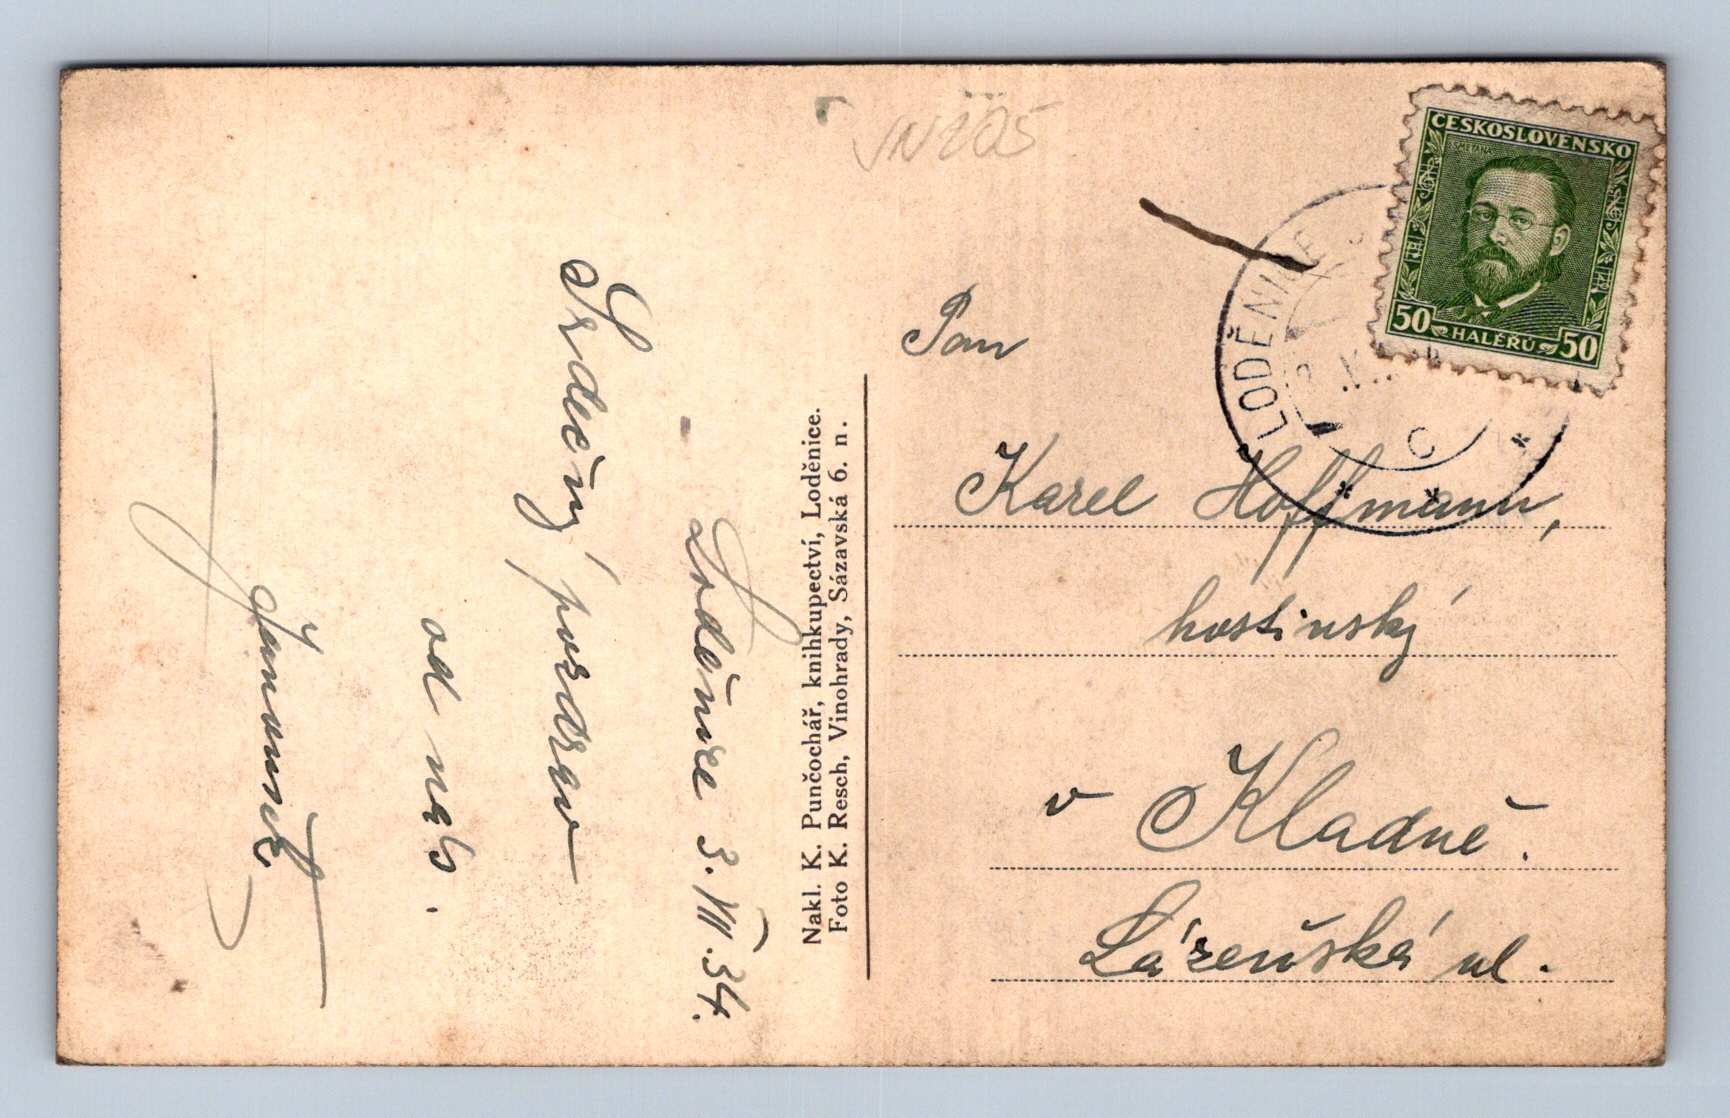 Loděnice 3.VII.34.
Srdečný pozdrav
od nás.
Nakl. K. Punčochář, knihkupectví, Loděnice.
Foto K. Resch, Vinohrady, Sázavská 6. n.
ČESKOSLOVENSKO
SMETANA
50 HALÉŘŮ 50
LODĚNICE
C
Pan
Karel Hoffmann,
hostinský
v Kladně.
Lázeňská ul.